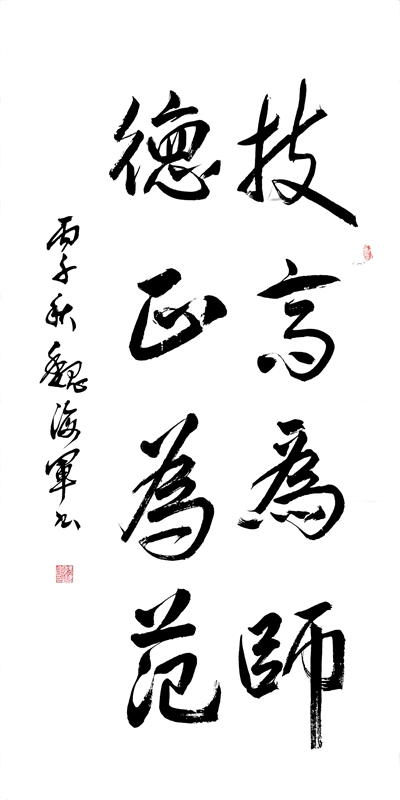 技高為師
德正為范
丙子秋魏海軍书